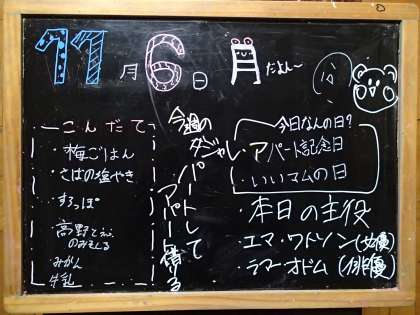 11月6日 月 だよん〜
こんだて
・梅ごはん
・さばの塩やき
・すっぽ
・高野とうふ
のみそしる
・みかん
・牛乳
今週のダジャレ
アパートして
アパート借りる
今日なんの日?
・アパート記念日
・いいマムの日
・本日の主役
・エマ・ワトソン(女優)
・ラマー・オドム(俳優)